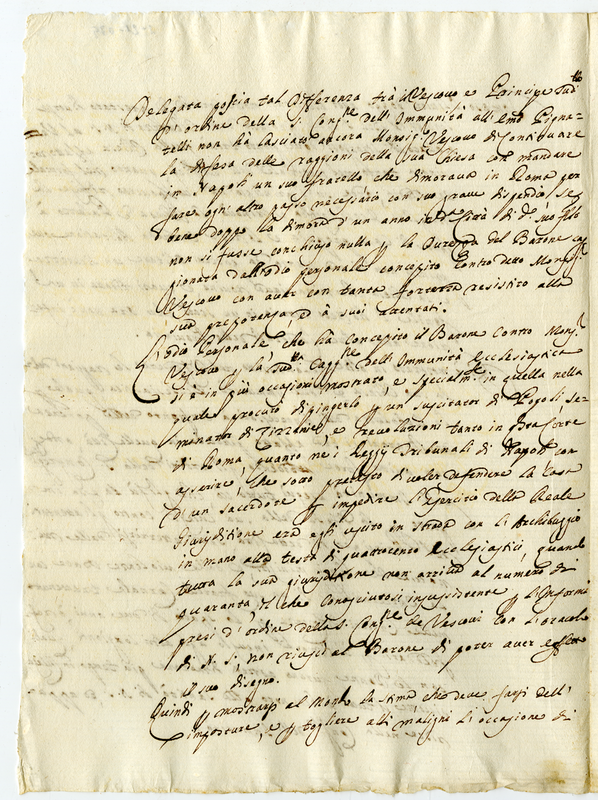 Delegata poscia tal differenza trà il Vescovo e Principe sud.to
d'ordine della S. Cong.ne dell'Immunità all' Emo Pigna-
telli non hà lasciato ancora Monsig.r Vescovo di continuare
la difesa delle raggioni della sua Chiesa con mandare
in Napoli un suo fratello che dimorava in Roma per
fare ogn' altro passo necessario con suo grave dispendio, se
bene doppo la dimora d'un anno in d.a Città di d.o suo fr̃ello
non si fusse conchiuso nulla p la durezza del Barone ca-
gionata dall'odio personale concepito contro detto Monsig.r
Vescovo con aver con tanta fortezza resistito alla
sua prepotenza, ed à suoi attentati.
L'odio Personale che hà concepito il Barone contro Mons.r
Vescovo p la sud.tta Cagg.ne dell'Immunità Ecclesiastica
si è in più occasioni mostrato, e specialm.te in quella nella
quale procurò dipingerlo p un suscitator di Popoli, se-
minator di Zizzanie, e revoluzioni tanto in Corte
di Roma, quanto ne i Reggij Tribunali di Napoli con
asserire, che sotto pretesto di voler defendere la casa
di un sacerdote p impedire l'Esercizio della Reale
Giurisditione era egli uscito in strada con l'Archibuggio
in mano alla testa di quattrocento Ecclesiastici, quando
tutta la sua giurisditione non arriva al numero di
quaranta, il che conosciutosi insussistente p l'Informi
presi d'ordine della S. Cong.ne de Vescovi con l'oracolo
di N. S., non riuscì al Barone di poter aver effetto
il suo disegno.
Quindi p mostrarsi al Mondo la stima che deve farsi dell'
imposture, e p togliere alli maligni l'occasione di